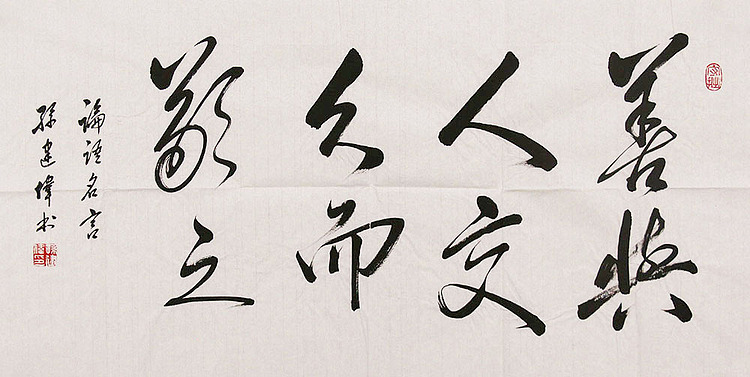 善與
人交
久而
敬之
論語名言
孫建偉书